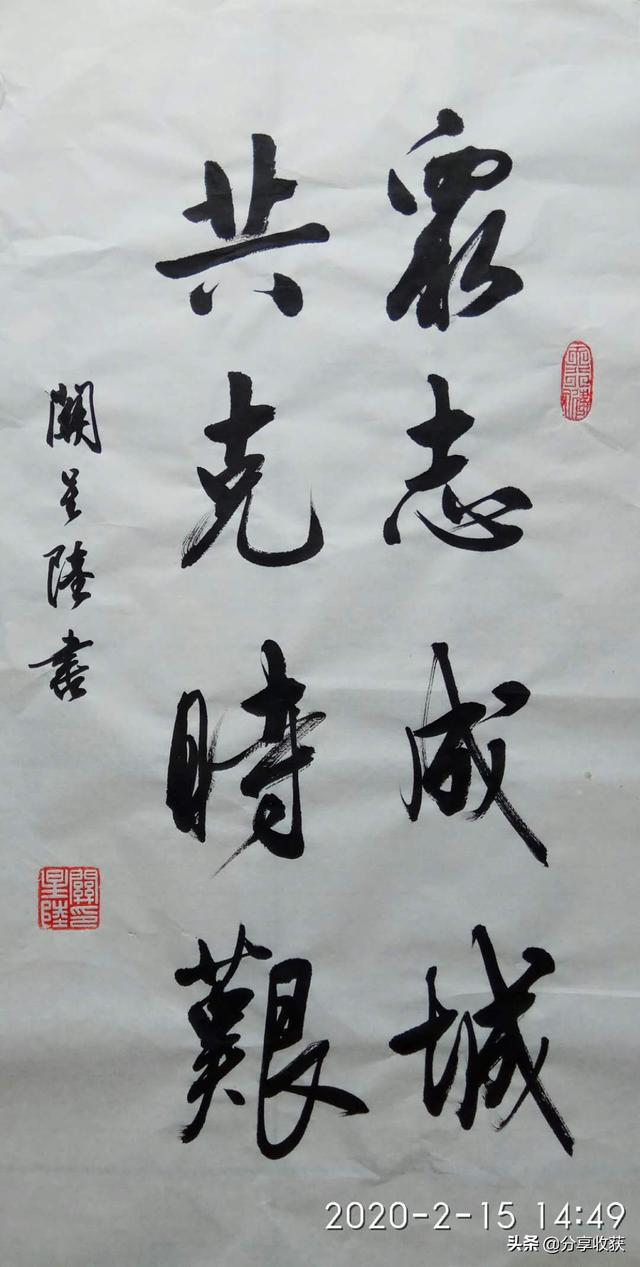 眾志成城
共克時艱
關星陸書
關印星陸
2020-2-15 14:49
头条 @分享收获